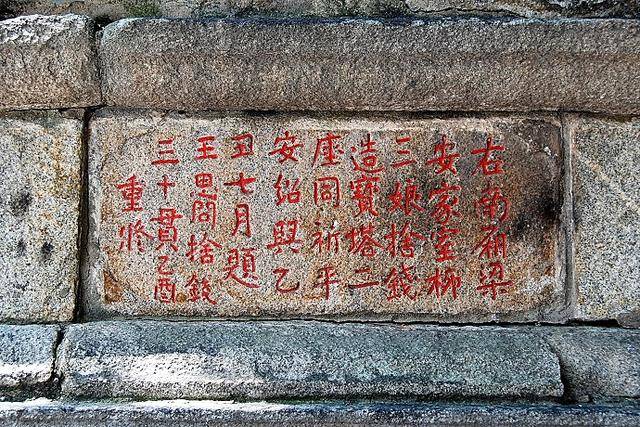 右南廂梁
安家室柳
三娘捨錢
造寶塔二
座同祈平
安紹興乙
丑七月題
王思問捨錢
三十貫乙酉
重將